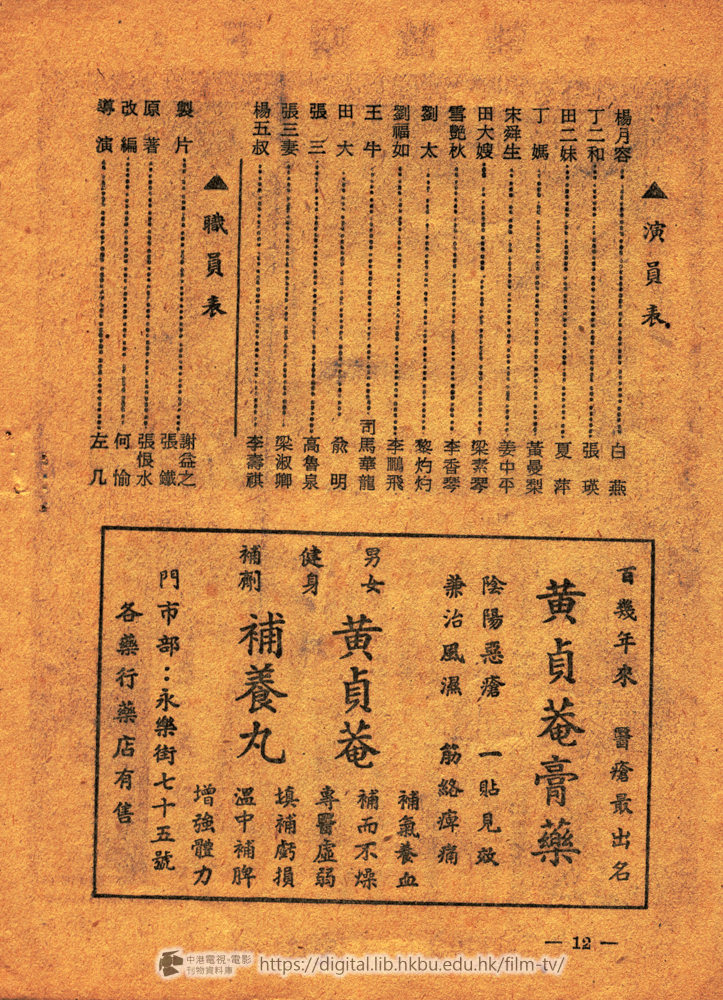 ▲演員表
楊月容⋯⋯白燕
丁二和⋯⋯張瑛
田二妹⋯⋯夏萍
丁媽⋯⋯黃曼梨
宋舜生⋯⋯姜中平
田大嫂⋯⋯梁素琴
雪艷秋⋯⋯李香琴
劉太⋯⋯黎灼灼
劉福如⋯⋯李鵬飛
王牛⋯⋯司馬華龍
田大⋯⋯俞明
張三⋯⋯高魯泉
張三妻⋯⋯梁淑卿
楊五叔⋯⋯李壽祺
▲職員表
製片⋯⋯謝益之 張鐵
原著⋯⋯張恨水
改編⋯⋯何愉
導演⋯⋯左几
百幾年來 醫瘡最出名
黃貞菴膏藥
陰陽惡瘡 一貼見效
兼治風濕 筋絡痺痛
男女
健身
補劑
黃貞菴
補養丸
補氣養血
補而不燥
專醫虛弱
填補虧損
溫中補脾
增強體力
門市部：永樂街七十五號
各藥行藥店有售
— 12 —
中港電視·電影
刊物資料庫
https://digital.lib.hkbu.edu.hk/film-tv/